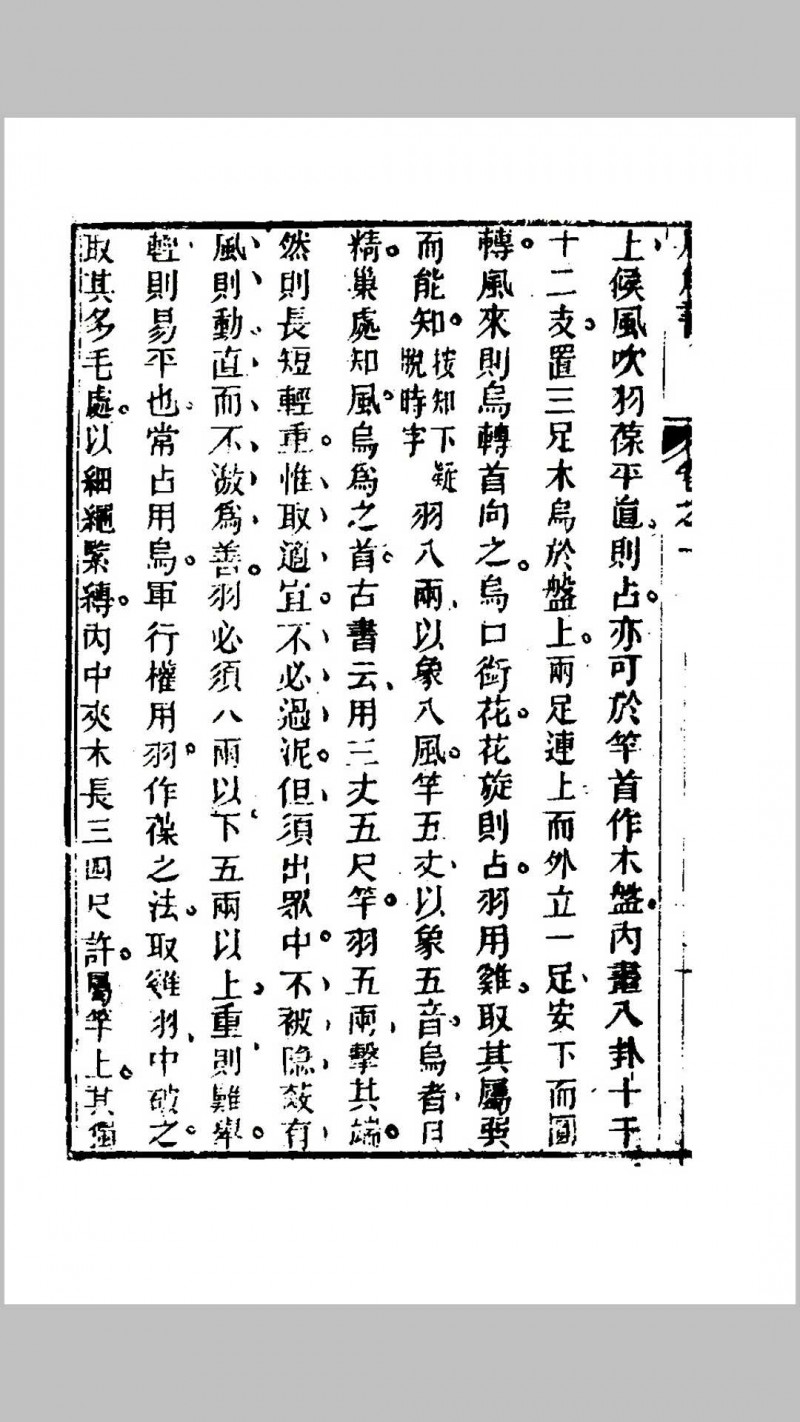 卷之一
上候風吹羽葆平直則占。亦可於竿首作木盤。內畫八卦十干
十二支。置三足木烏於盤上。兩足連上而外立一足安下而圓
轉。風來則烏轉首向之。烏口銜花。花旋則占。羽用雞。取其屬巽
而能知。按知下疑脫時字 羽八兩、以象八風。竿五丈、以象五音。烏者日
精。巢處知風。烏為之首。古書云、用三丈五尺竿。羽五兩、擊其端。
然則長短輕重。惟取適宜。不必過泥。但須出眾中。不被隱蔽有
風則動直而不激為善。羽必須八兩以下五兩以上。重則難舉。
輕則易平也。常占用烏。軍行權用羽。作葆之法。取雞羽中破之。
取其多毛處。以細繩緊縛。內中夾木長三四尺許。屬竿上。其